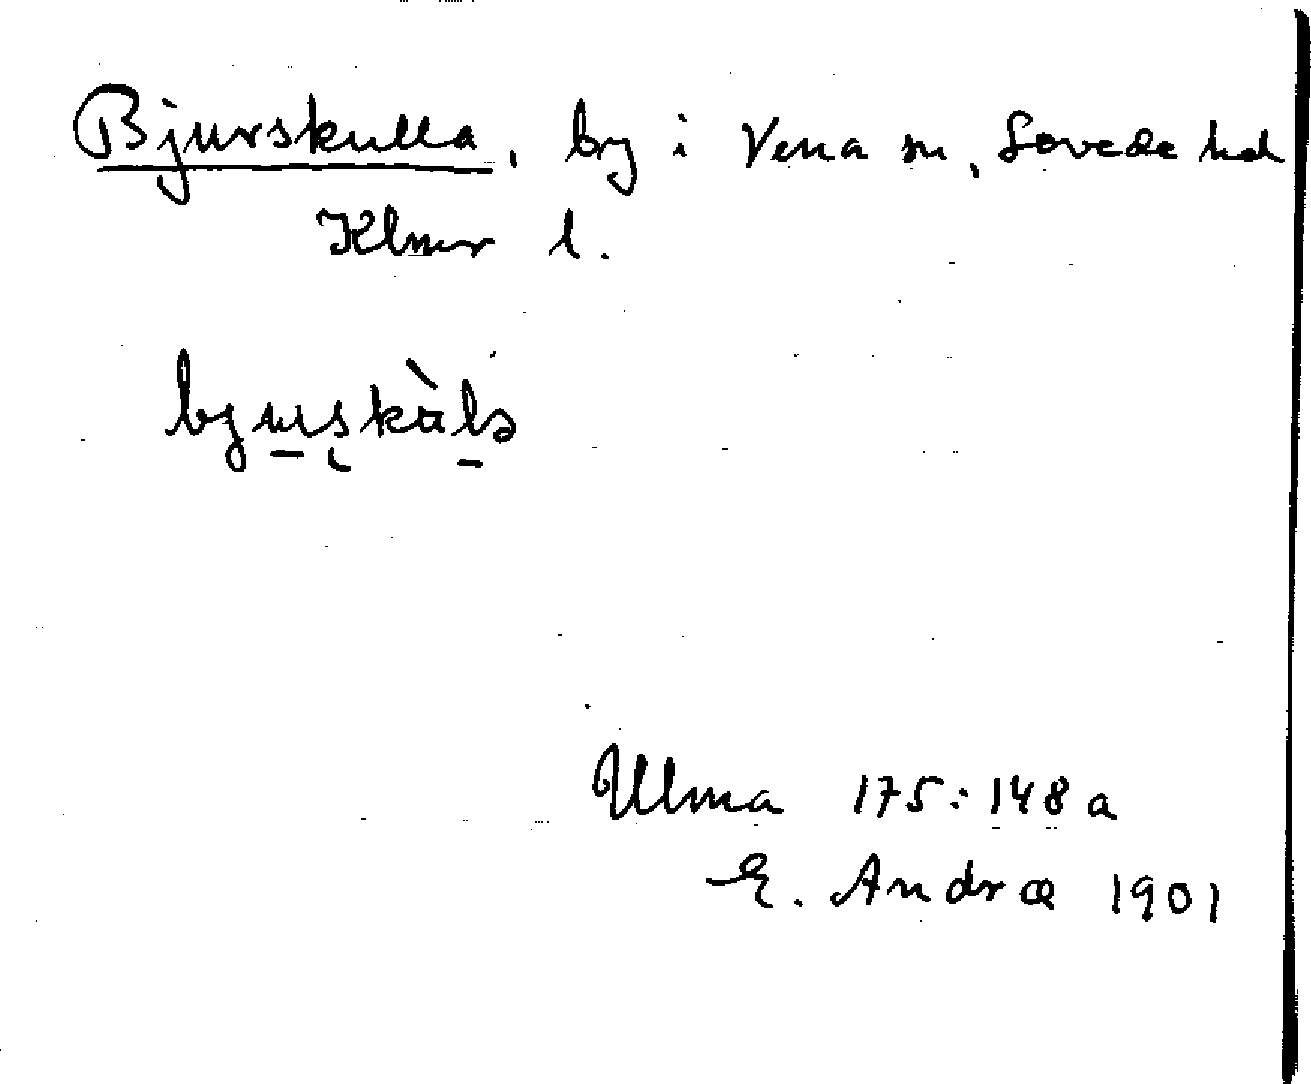 Bjurskulla, by i Vena sn, Sevede hd
Klmr l.
bjuṣkàlɔ
Ulma 175:148a
E. Andræ 1901